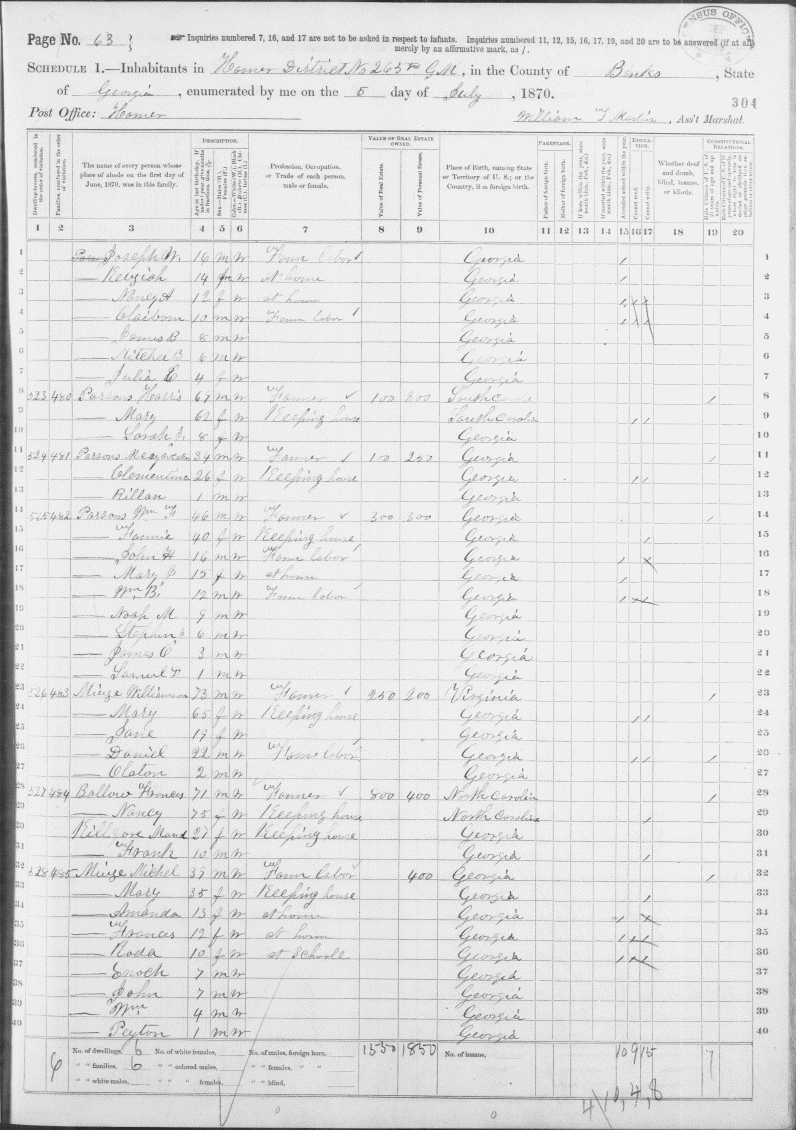 Page No. 63
Inquiries numbered 7, 16, and 17 are not to be asked in respect to infants. Inquiries numbered 11, 12, 15, 16, 17, 19, and 20 are to be answered (if at all)
merely by an affirmative mark, as /.
SCHEDULE 1.—Inhabitants in Homer District No 263rd G.M., in the County of Banks, State
of Georgia, enumerated by me on the 5 day of July, 1870.
304
Post Office: Homer
William T. , Ass't Marshal.
DESCRIPTION. VALUE OF REAL ESTATE OWNED. PARENTAGE. EDUCATION. CONSTITUTIONAL RELATIONS.
The name of every person whose place of abode on the first day of June, 1870, was in this family.
Profession, Occupation, or Trade of each person, male or female.
Value of Real Estate. Value of Personal Estate.
Place of Birth, naming State or Territory of U. S.; or the Country, if of foreign birth.
Whether deaf and dumb, blind, insane, or idiotic.
1 2 3 4 5 6 7 8 9 10 11 12 13 14 15 16 17 18 19 20
1 Joseph W. 16 m W Farm labor Georgia / 1
2 — Keziah 14 W at home Georgia / 2
3 — Nancy A 12 f W at home Georgia 3
4 — Claiborn 10 m W Farm labor Georgia 4
5 — James B 8 m W Georgia 5
6 — B 6 m W Georgia 6
7 — Julia E 4 f W Georgia 7
8 523 480 Parsons Harris 69 m W Farmer 100 800 South Carola / 8
9 — Mary 62 f W Keeping house South Carola 9
10 — Sarah 8 f W Georgia 10
11 524 481 Parsons 34 m W Farmer 100 250 Georgia / 11
12 — Clementine 26 f W Keeping house Georgia 12
13 — Rillan 1 m W Georgia 13
14 525 482 Parsons Wm F 46 m W Farmer 300 300 Georgia / 14
15 — Fannie 40 f W Keeping house Georgia / 15
16 — John H 16 m W Farm labor Georgia 16
17 — Mary 15 f W at house Georgia / 17
18 — Wm B. 12 m W Farm labor Georgia 18
19 — Noah M 9 m W Georgia 19
20 — Stephen 6 m W Georgia 20
21 — James C 3 m W Georgia 21
22 — Samuel F 1 m W Georgia 22
23 526 483 Minze Williamson 73 m W Farmer 250 200 Virginia / 23
24 — Mary 65 f W Keeping house Georgia 24
25 — Jane 19 f W Georgia 25
26 — Daniel 22 m W Farm labor Georgia / 26
27 — Claton 2 m W Georgia 27
28 527 484 Ballow Frances 71 m W Farmer 800 400 North Carolin / 28
29 — Nancy 75 f W Keeping house North Carolina / 29
30 Killgore Mand 27 f W Keeping house Georgia 30
31 — Frank 10 m W Georgia / 31
32 528 485 Minze Michel 39 m W Farm labor 400 Georgia / 32
33 — Mary 35 f W Keeping house Georgia / 33
34 — Amanda 13 f W at home Georgia 34
35 — Frances 12 f W at hom Georgia 35
36 — Roda 10 f W at Schoole Georgia 36
37 — Enoch 7 m W Georgia 37
38 — John 7 m W Georgia 38
39 — Wm 4 m W Georgia 39
40 — Peyton 1 m W Georgia 40
6 No. of dwellings, 6 No. of white females, No. of males, foreign born, 1550 1850 No. of insane, 10 9 15 7
" " families, 6 " " colored males, " " females, " "
" " white males, " " " females, " " blind,
4\10,4,8